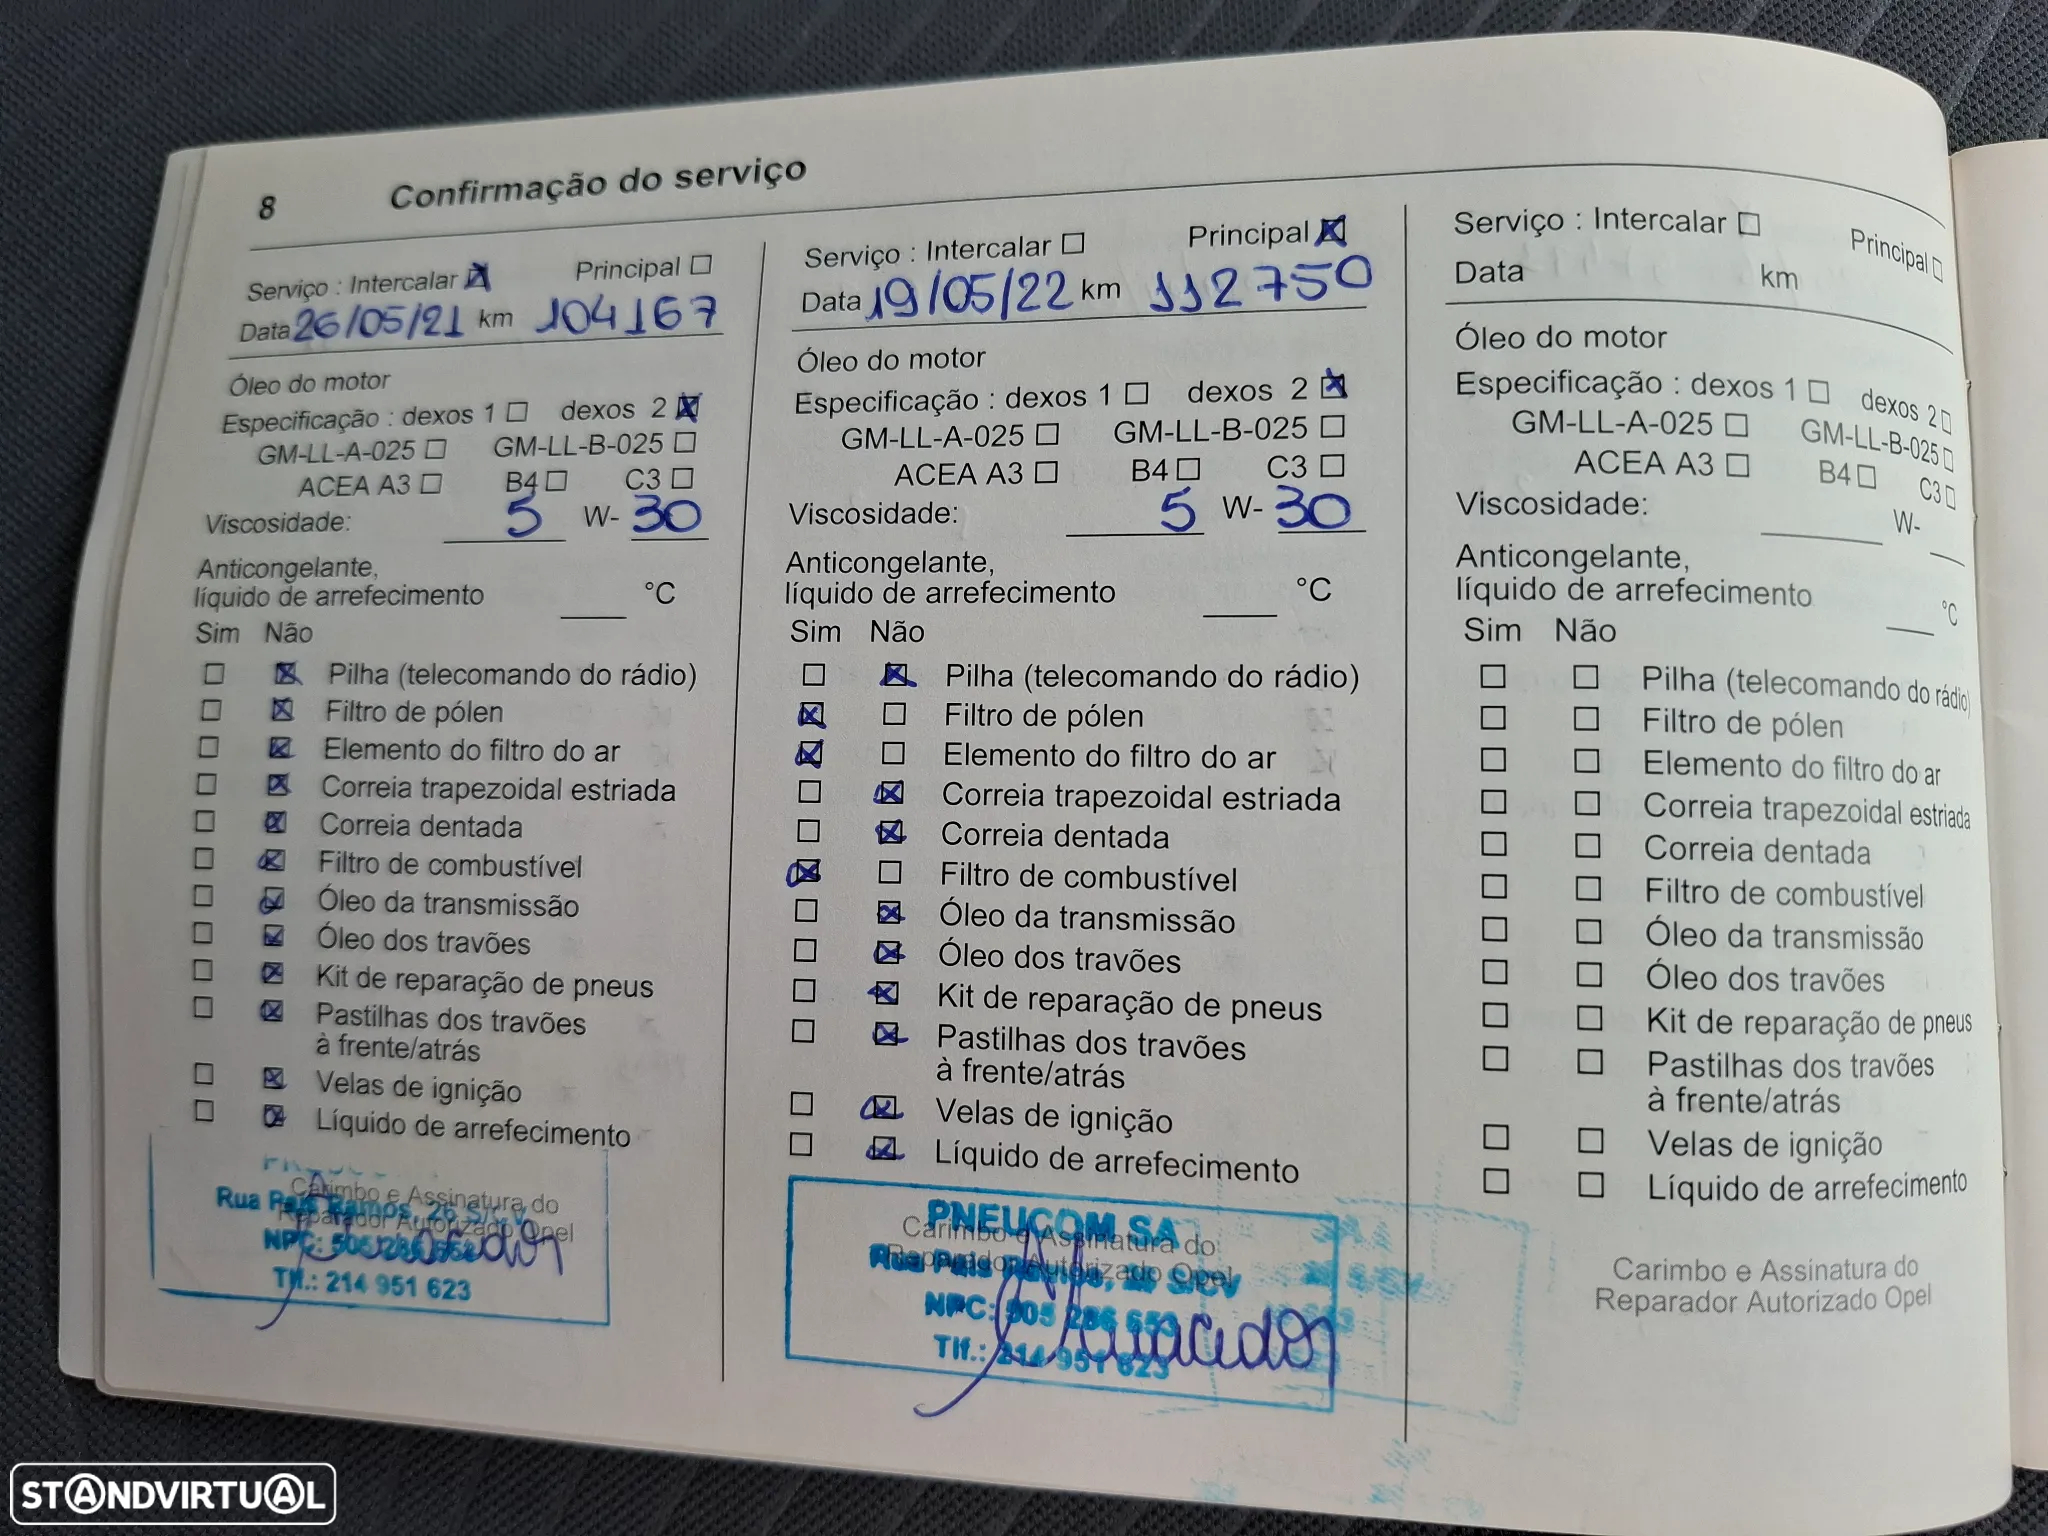 8 Confirmação do serviço
Serviço : Intercalar Principal
Data 26/05/21 km 104167
Óleo do motor
Especificação : dexos 1 dexos 2
GM-LL-A-025 GM-LL-B-025
ACEA A3 B4 C3
Viscosidade: 5 W- 30
Anticongelante,
líquido de arrefecimento °C
Sim Não
Pilha (telecomando do rádio)
Filtro de pólen
Elemento do filtro do ar
Correia trapezoidal estriada
Correia dentada
Filtro de combustível
Óleo da transmissão
Óleo dos travões
Kit de reparação de pneus
Pastilhas dos travões
à frente/atrás
Velas de ignição
Líquido de arrefecimento
Carimbo e Assinatura do
Reparador Autorizado Opel
Rua Pais Ramos, 26
NPC: 505 286
Tlf.: 214 951 623
Serviço : Intercalar Principal
Data 19/05/22 km 112750
Óleo do motor
Especificação : dexos 1 dexos 2
GM-LL-A-025 GM-LL-B-025
ACEA A3 B4 C3
Viscosidade: 5 W- 30
Anticongelante,
líquido de arrefecimento °C
Sim Não
Pilha (telecomando do rádio)
Filtro de pólen
Elemento do filtro do ar
Correia trapezoidal estriada
Correia dentada
Filtro de combustível
Óleo da transmissão
Óleo dos travões
Kit de reparação de pneus
Pastilhas dos travões
à frente/atrás
Velas de ignição
Líquido de arrefecimento
PNEUCOM SA
Carimbo e Assinatura do
Reparador Autorizado Opel
Rua Pais Ramos,
NPC: 505 286 653
Tlf.: 214 951 623
Serviço : Intercalar Principal
Data km
Óleo do motor
Especificação : dexos 1 dexos 2
GM-LL-A-025 GM-LL-B-025
ACEA A3 B4 C3
Viscosidade: W-
Anticongelante,
líquido de arrefecimento °C
Sim Não
Pilha (telecomando do rádio)
Filtro de pólen
Elemento do filtro do ar
Correia trapezoidal estriada
Correia dentada
Filtro de combustível
Óleo da transmissão
Óleo dos travões
Kit de reparação de pneus
Pastilhas dos travões
à frente/atrás
Velas de ignição
Líquido de arrefecimento
Carimbo e Assinatura do
Reparador Autorizado Opel
STANDVIRTUAL